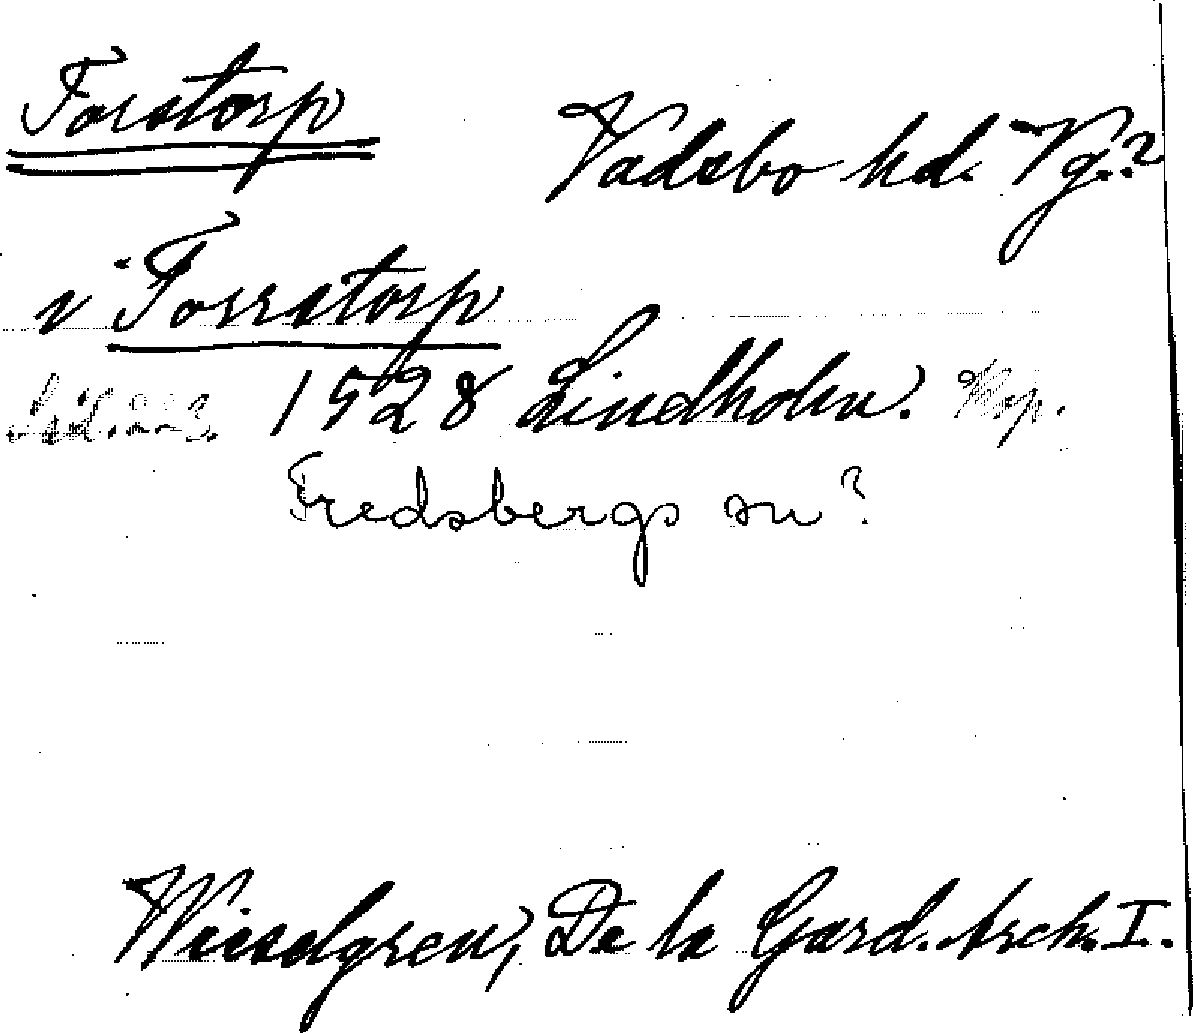 Forstorp
Vadsbo hd. Vg.?
i Forsstorp
sid. 223. 1528 Lindholm. Kop.
Fredsbergs sn?
Wieselgren, De la Gard. Arch. I.